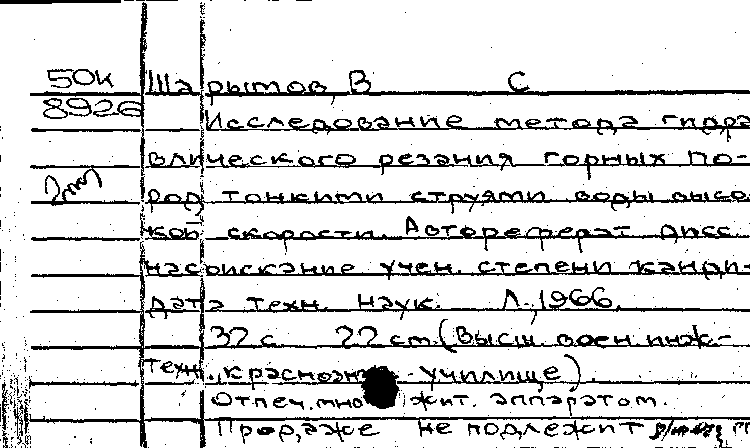 50к Шарытов, В С
8926
Исследование метода гидра
влического резания горных по-
род тонкими струями воды высо
кой скорости. Автореферат дисс.
на соискание учен. степени канди-
дата техн. наук. Л., 1966.
32 с. 22 cm (Высш воен. инж-
техн., краснозн. училище).
Отпеч. множит. аппаратом.
Продаже не подлежит